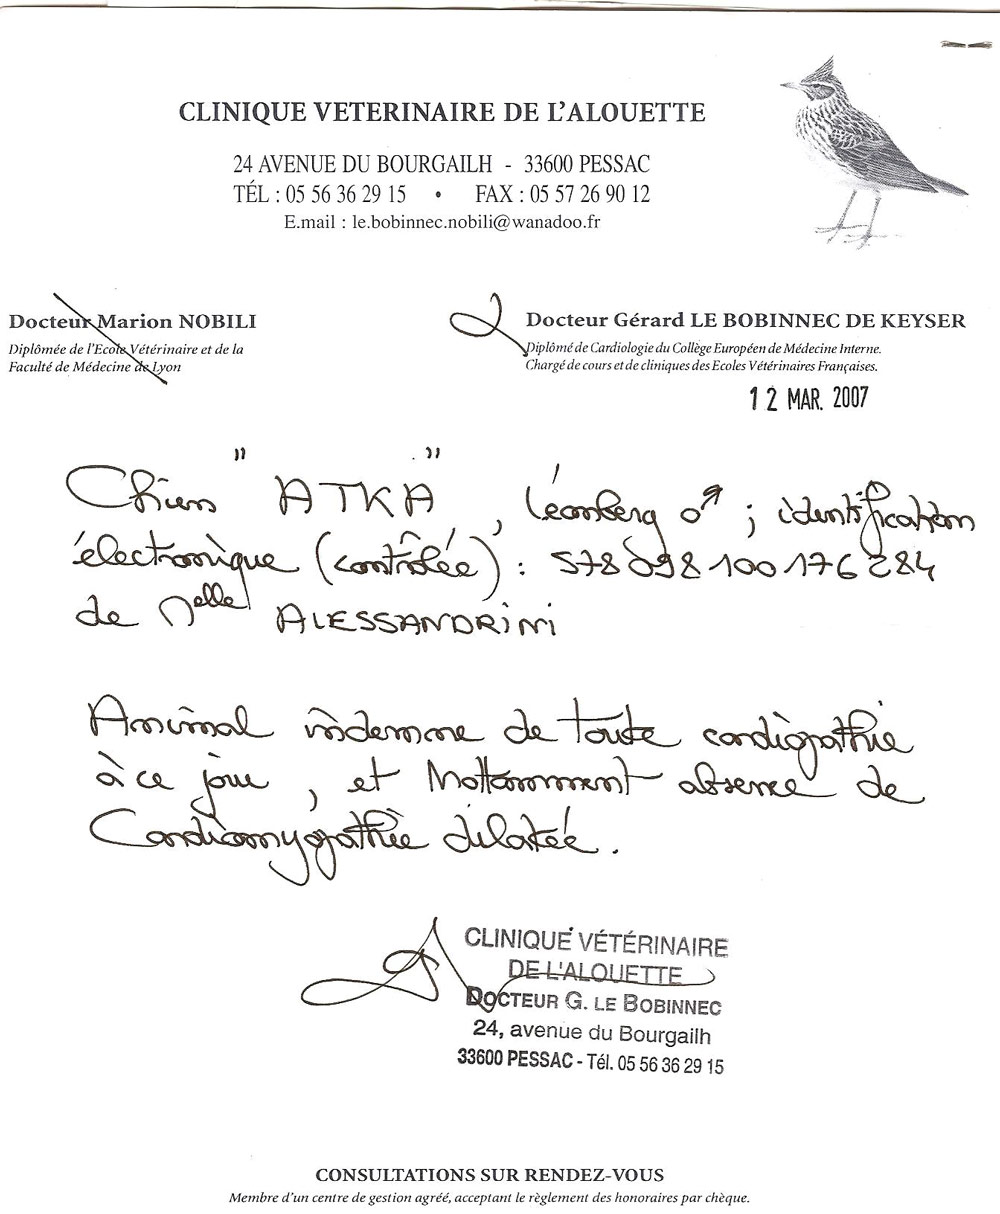 CLINIQUE VETERINAIRE DE L'ALOUETTE
24 AVENUE DU BOURGAILH - 33600 PESSAC
TÉL : 05 56 36 29 15 • FAX : 05 57 26 90 12
E.mail : le.bobinnec.nobili@wanadoo.fr
Docteur Marion NOBILI
Diplômée de l'Ecole Vétérinaire et de la
Faculté de Médecine de Lyon
Docteur Gérard LE BOBINNEC DE KEYSER
Diplômé de Cardiologie du Collège Européen de Médecine Interne.
Chargé de cours et de cliniques des Ecoles Vétérinaires Françaises.
12 MAR. 2007
Chien "ATKA", Léonberg ♂ ; identification
électronique (contrôlée) : 578098100176284
de Melle ALESSANDRINI
Animal indemne de toute cardiopathie
à ce jour, et Nottamment absence de
Cardiomyopathie dilatée.
CLINIQUE VÉTÉRINAIRE
DE L'ALOUETTE
DOCTEUR G. LE BOBINNEC
24, avenue du Bourgailh
33600 PESSAC - Tél. 05 56 36 29 15
CONSULTATIONS SUR RENDEZ-VOUS
Membre d'un centre de gestion agréé, acceptant le règlement des honoraires par chèque.